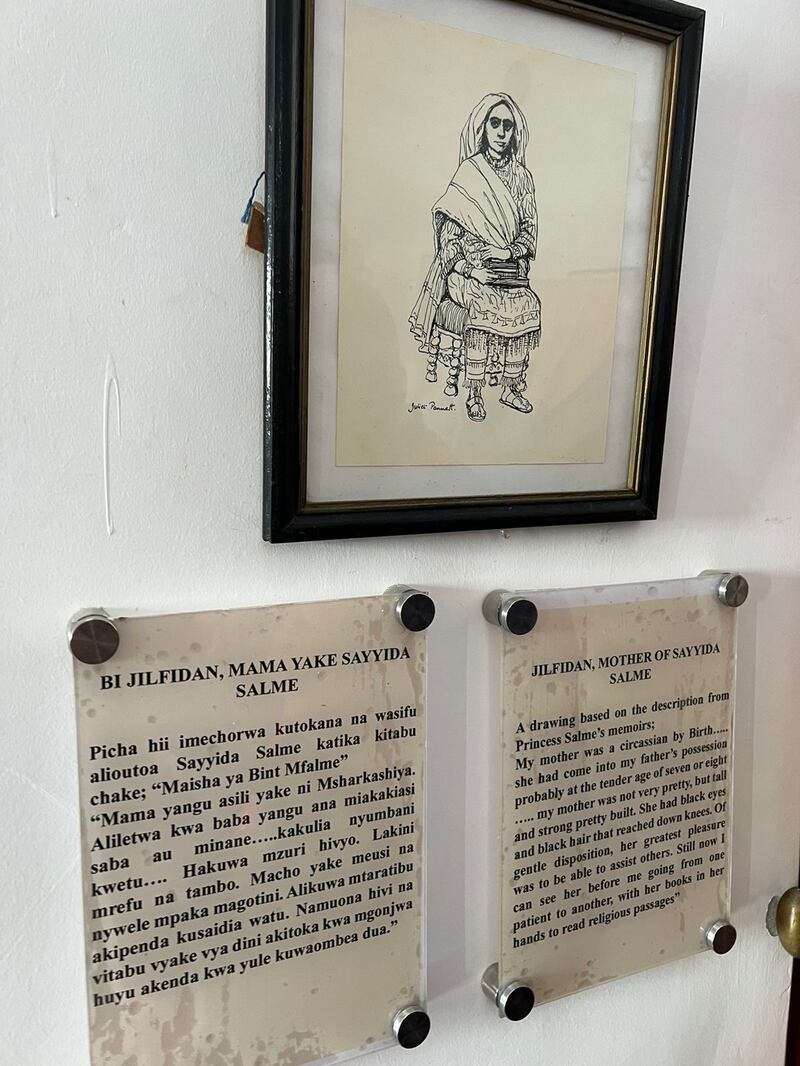 BI JILFIDAN, MAMA YAKE SAYYIDA
SALME
Picha hii imechorwa kutokana na wasifu
alioutoa Sayyida Salme katika kitabu
chake; “Maisha ya Bint Mfalme”
“Mama yangu asili yake ni Msharkashiya.
Aliletwa kwa baba yangu ana miakakiasi
saba au minane.....kakulia nyumbani
kwetu.... Hakuwa mzuri hivyo. Lakini
mrefu na tambo. Macho yake meusi na
nywele mpaka magotini. Alikuwa mtaratibu
akipenda kusaidia watu. Namuona hivi na
vitabu vyake vya dini akitoka kwa mgonjwa
huyu akenda kwa yule kuwaombea dua.”
JILFIDAN, MOTHER OF SAYYIDA
SALME
A drawing based on the description from
Princess Salme’s memoirs;
My mother was a circassian by Birth.....
she had come into my father’s possession
probably at the tender age of seven or eight
..... my mother was not very pretty, but tall
and strong pretty built. She had black eyes
and black hair that reached down knees. Of
gentle disposition, her greatest pleasure
was to be able to assist others. Still now I
can see her before me going from one
patient to another, with her books in her
hands to read religious passages”